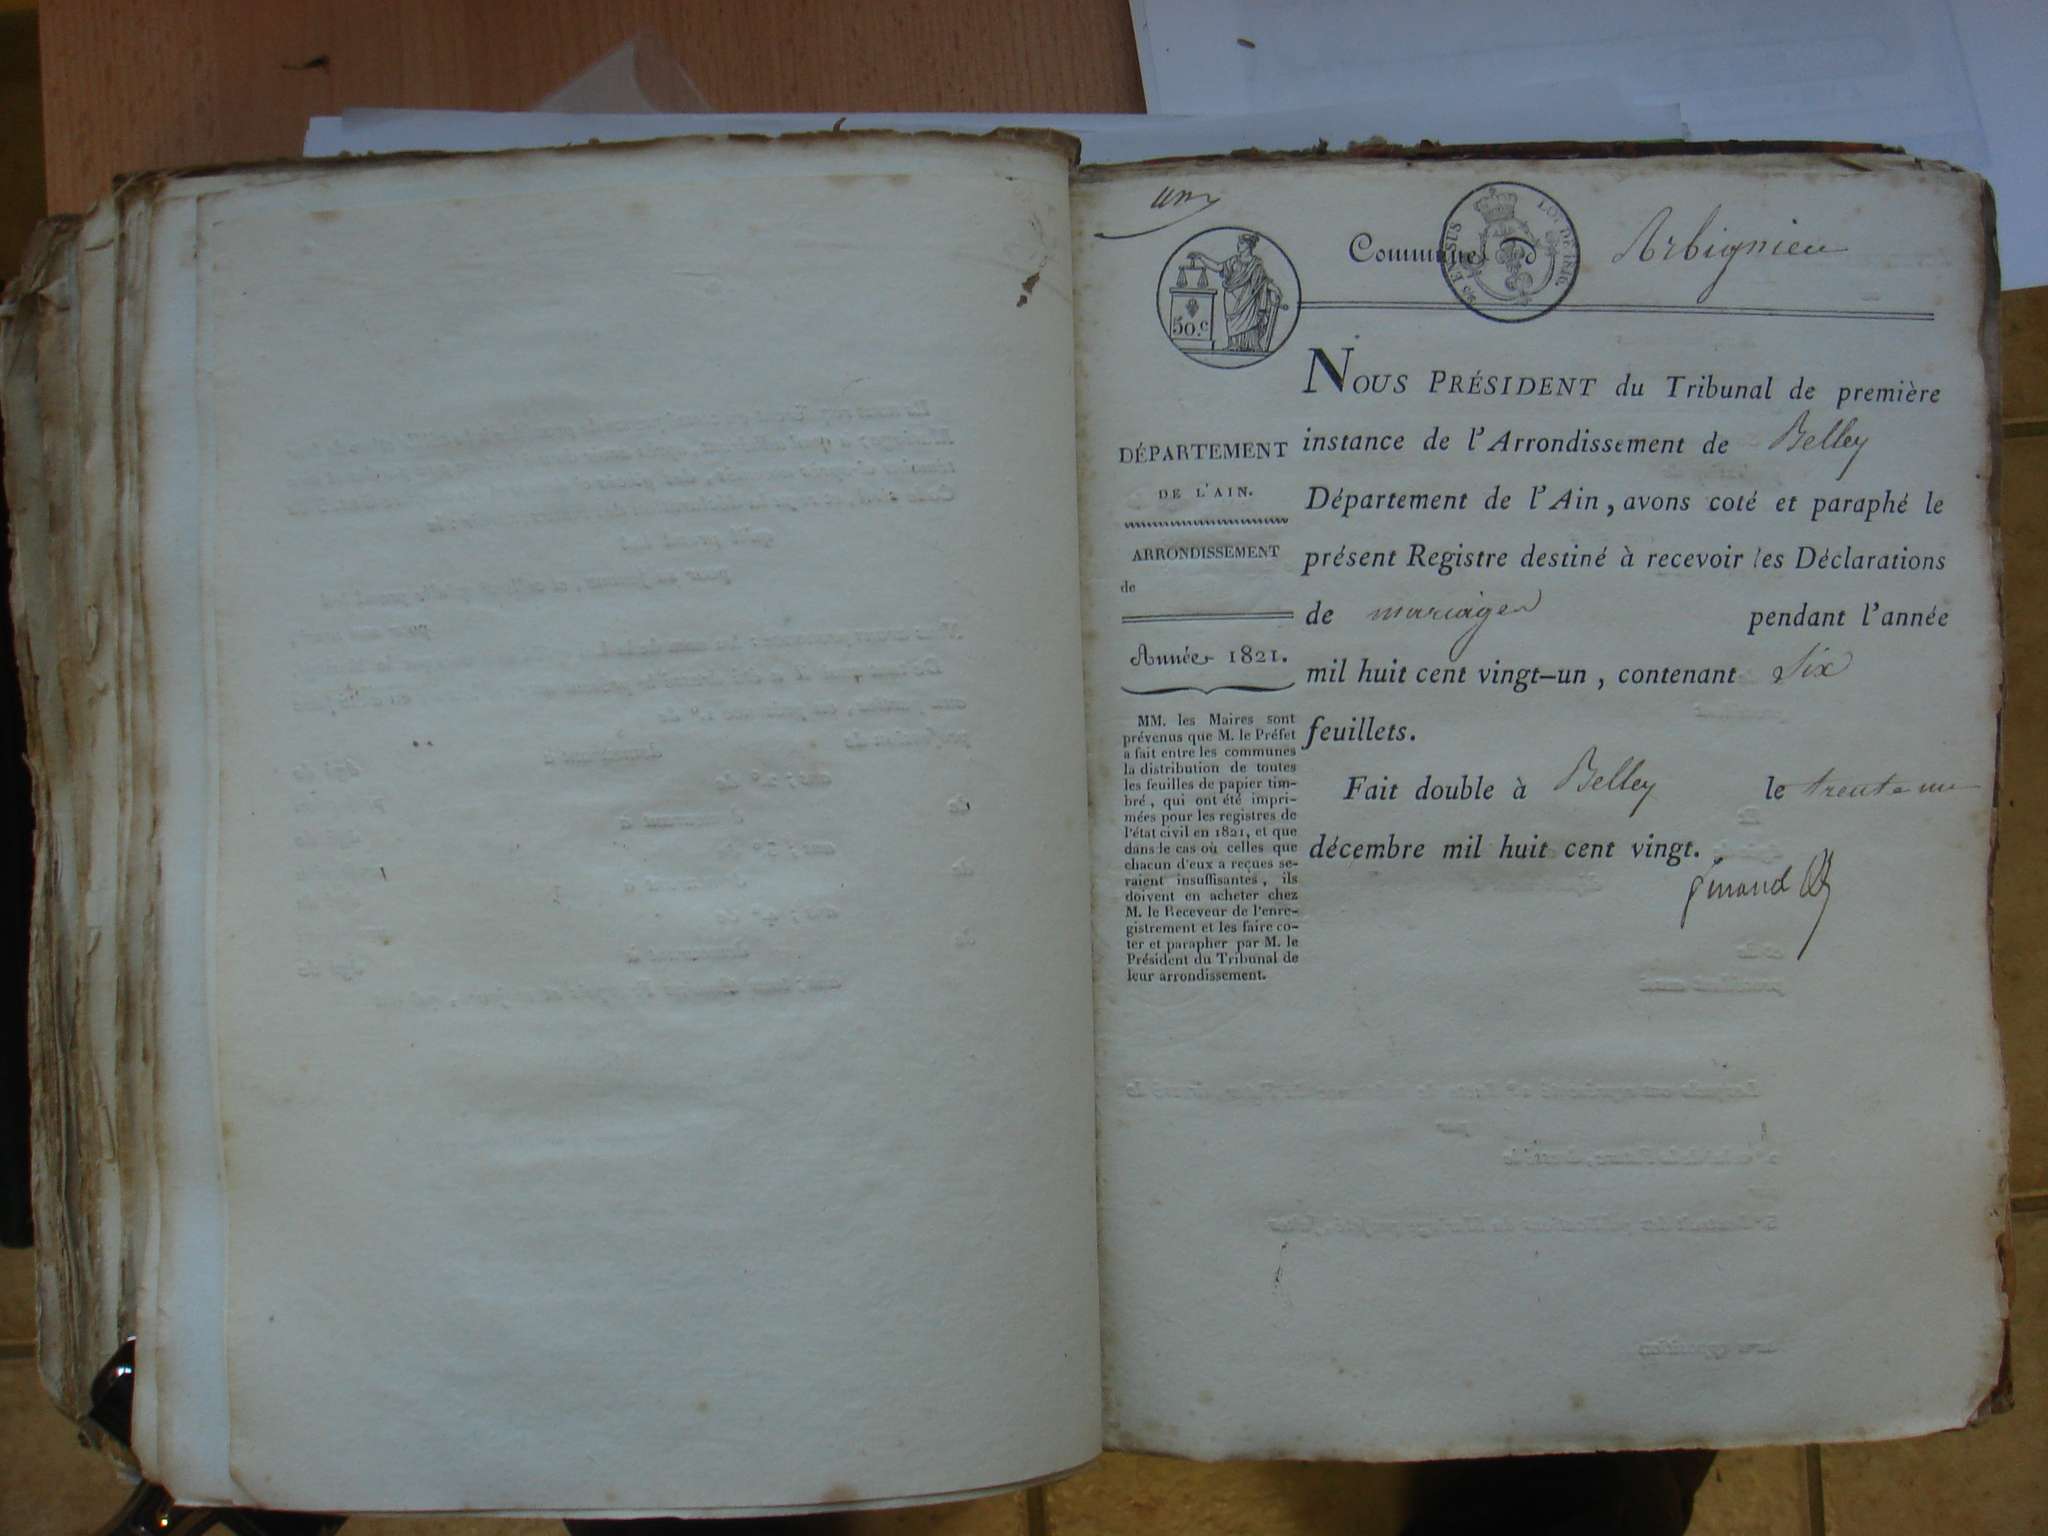 un
Commune d Arbignieu
50.c
EN SUS
LOI DE 1816
NOUS PRÉSIDENT du Tribunal de première
instance de l'Arrondissement de Belley
Département de l'Ain, avons coté et paraphé le
présent Registre destiné à recevoir les Déclarations
de mariages pendant l'année
mil huit cent vingt-un, contenant Six
feuillets.
Fait double à Belley le trente un
décembre mil huit cent vingt.
DÉPARTEMENT
DE L'AIN.
ARRONDISSEMENT
de
Année 1821.
MM. les Maires sont
prévenus que M. le Préfet
a fait entre les communes
la distribution de toutes
les feuilles de papier tim-
bré, qui ont été impri-
mées pour les registres de
l'état civil en 1821, et que
dans le cas où celles que
chacun d'eux a reçues se-
raient insuffisantes, ils
doivent en acheter chez
M. le Receveur de l'enre-
gistrement et les faire co-
ter et parapher par M. le
Président du Tribunal de
leur arrondissement.